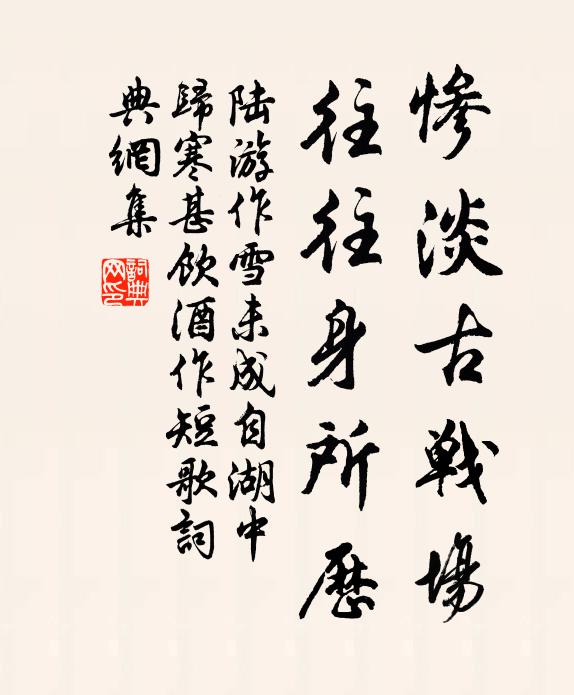 惨淡古戰場
往往身所歷
陆游作雪未成自湖中
歸寒甚飲酒作短歌詞
典網集
詞典网印